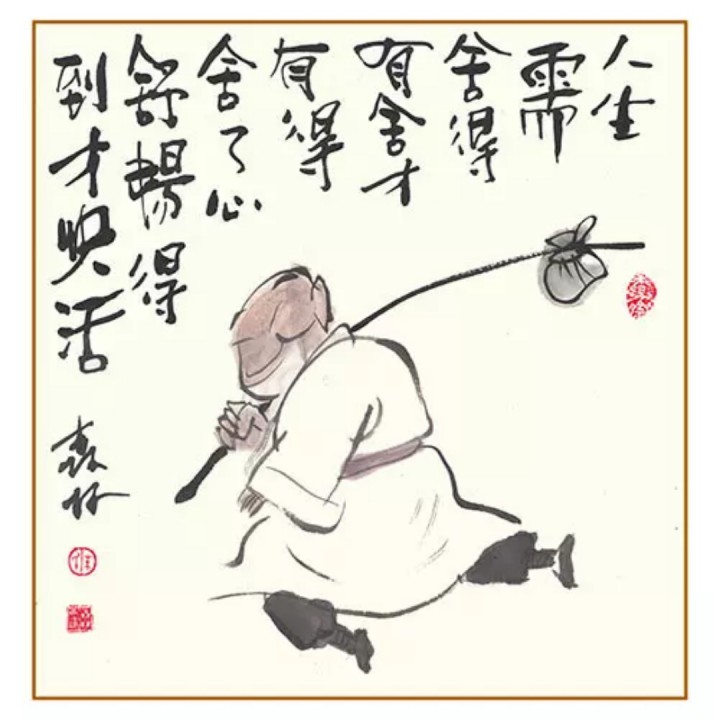 人生
需
舍得
有舍才
有得
舍了心
舒暢得
到才快活